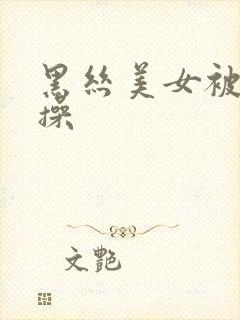 黑丝美女被
操
文艳